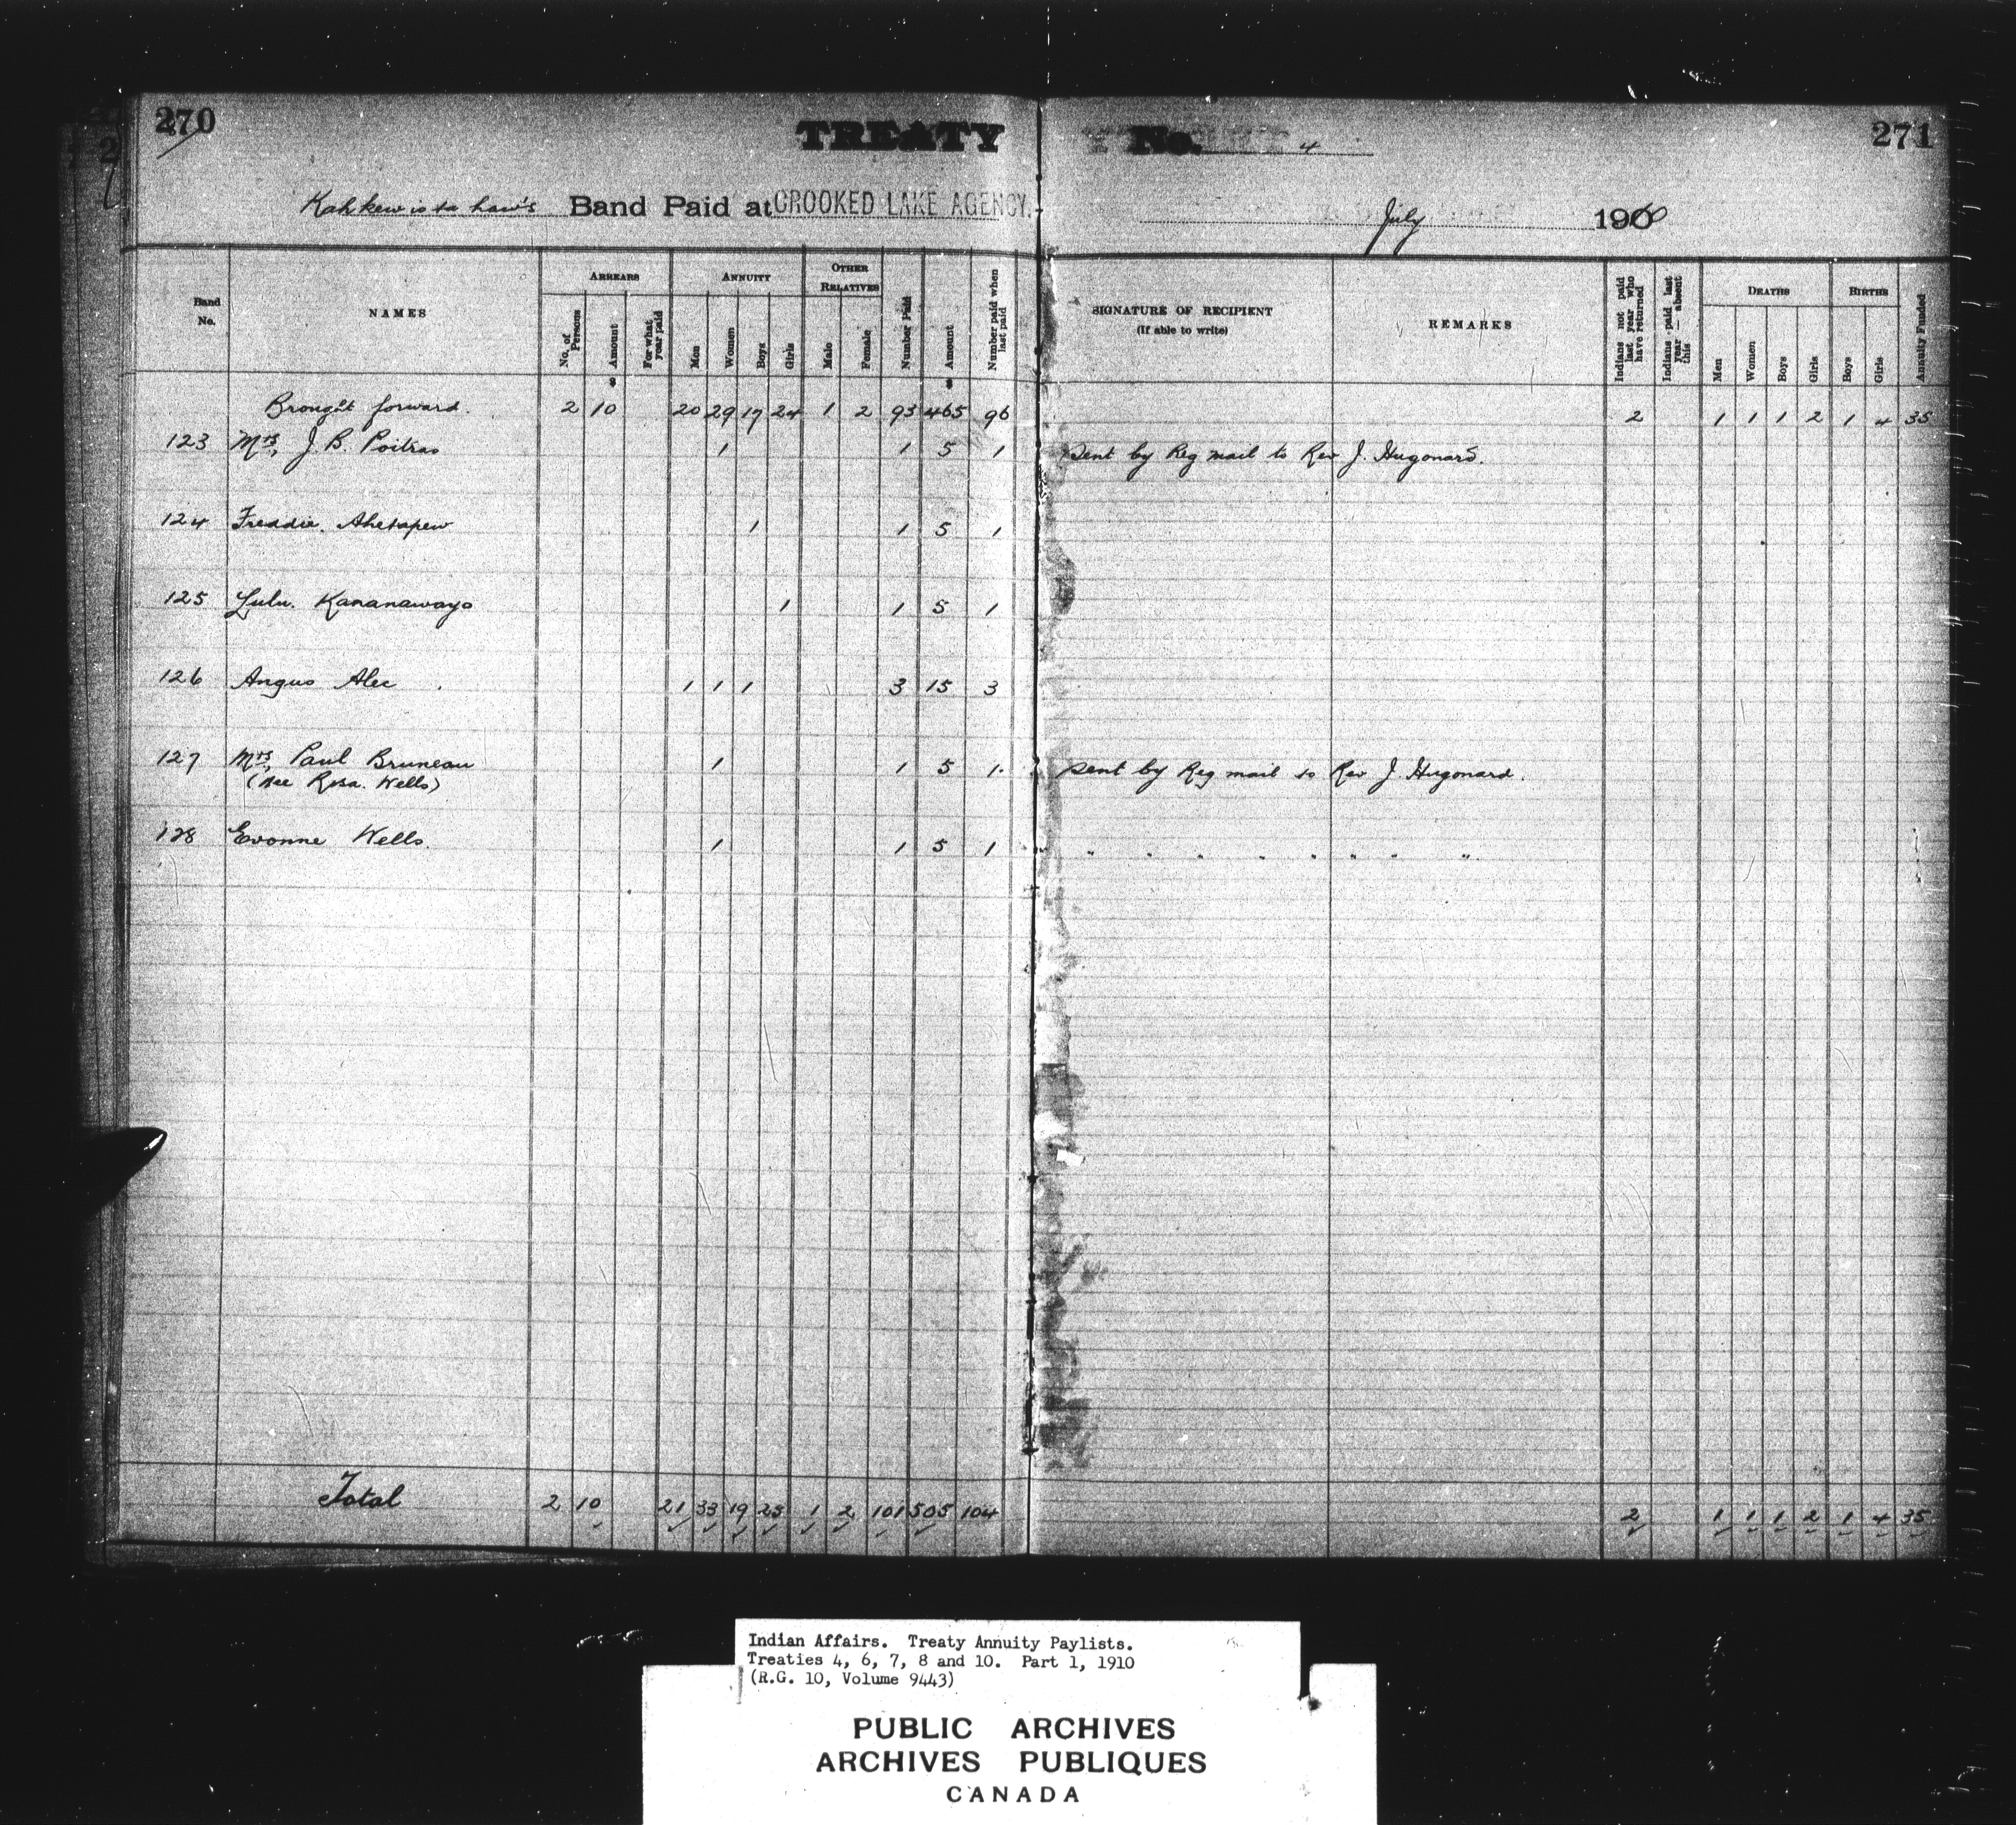 270
TREATY No. 4
271
Kahkewistahaw's Band Paid at CROOKED LAKE AGENCY. July 1910
Band No.
NAMES
ARREARS
No. of Persons
Amount
For what year paid
ANNUITY
Men
Women
Boys
Girls
OTHER RELATIVES
Male
Female
Number Paid
Amount
Number paid when last paid
SIGNATURE OF RECIPIENT
(If able to write)
REMARKS
Indians not paid last year who have returned
Indians paid last year — absent this
DEATHS
Men
Women
Boys
Girls
BIRTHS
Boys
Girls
Annuity Funded
Brought forward. 2 10 20 29 17 24 1 2 93 465 96 2 1 1 1 2 1 4 35
123 Mrs, J. B. Poitras 1 1 5 1 Sent by Reg mail to Rev J. Hugonard.
124 Freddie. Ahetapew 1 1 5 1
125 Lulu. Kananawayo 1 1 5 1
126 Angus Alec 1 1 1 3 15 3
127 Mrs, Paul Bruneau 1 1 5 1. sent by Reg mail to Rev J. Hugonard.
(Nee Rosa. Wells)
128 Evonne Wells. 1 1 5 1 " " " " " " " "
Total 2 10 21 33 19 25 1 2 101 505 104 2 1 1 1 2 1 4 35
Indian Affairs. Treaty Annuity Paylists.
Treaties 4, 6, 7, 8 and 10. Part 1, 1910
(R.G. 10, Volume 9443)
PUBLIC ARCHIVES
ARCHIVES PUBLIQUES
CANADA